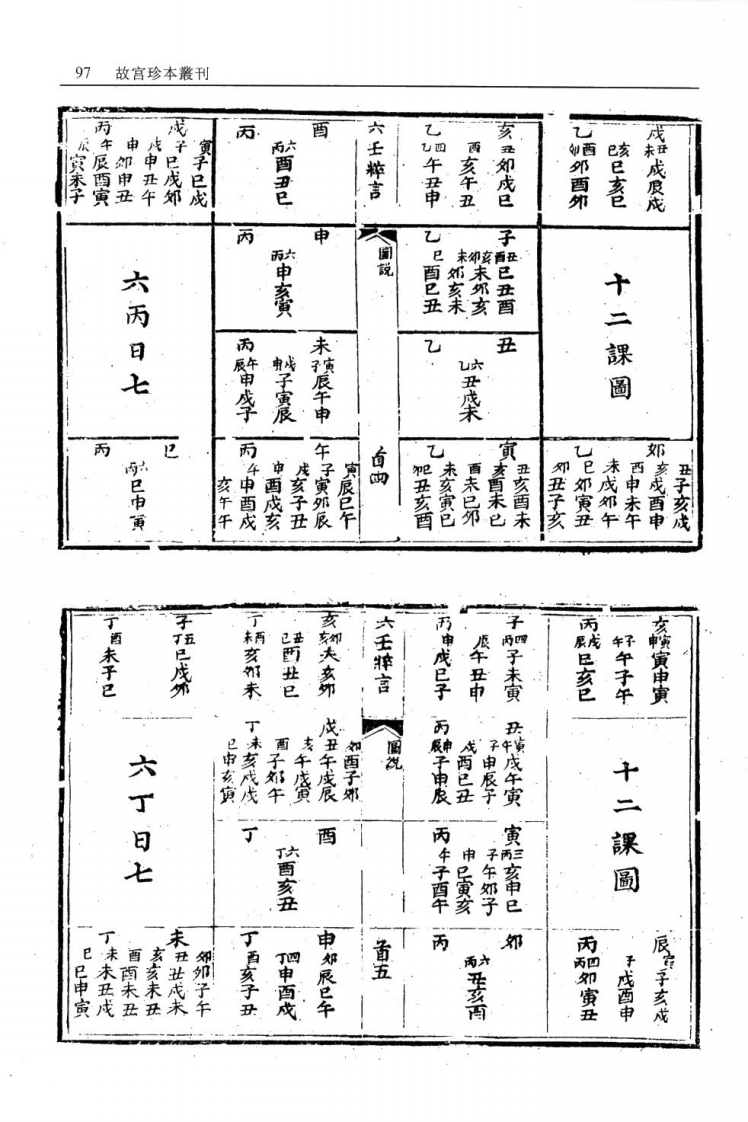 97 故宫珍本叢刊
戌丑未戌辰戌
亥巳巳亥巳
乙酉卯卯酉卯
十二課圖
卯丑子亥戌
亥戌酉申
酉申未午
未戌卯午
乙巳卯寅丑
卯丑子亥
亥丑卯戌巳
酉亥午丑
乙四乙午丑申
子丑酉巳丑酉
亥卯未卯亥
未卯亥未
乙巳酉巳丑
丑
乙六乙丑戌未
寅丑亥酉未
亥酉未巳
酉未巳卯
未亥寅巳
乙巳丑亥酉
六壬粹言
圖説
百四
酉
丙六丙酉丑巳
申
丙六丙申亥寅
未寅子辰午申
戌申子寅辰
丙午辰申戌子
午寅辰巳午
子寅卯辰
戌亥子丑
申酉戌亥
丙午申酉戌
亥午午
戌寅子巳戌
子巳戌卯
戌申丑午
申卯申丑
丙午辰酉寅
辰寅未子
六丙日七
巳
丙六丙巳申寅
亥寅申寅申寅
子午午子午
丙戌辰巳亥巳
十二課圖
辰寅子亥戌
子戌酉申
丙四丙卯寅丑
子四丙子未寅
辰午丑申
丙申戌巳子
丑寅午戌午寅
子申辰子
戌酉巳丑
丙申辰子申辰
寅三丙亥申巳
子午卯子
申巳寅亥
丙午子酉午
卯
丙六丙丑亥酉
六壬粹言
圖説
百五
亥卯亥未亥卯
丑巳酉丑巳
丁酉未亥卯未
戌卯酉子卯
丑午戌辰
亥午戌寅
酉子卯午
丁未亥戌戌
巳申亥寅
酉
丁六丁酉亥丑
申卯辰巳午
丁四丁申酉戌
丁酉亥子丑
子五丁巳戌卯
丁酉未子巳
六丁日七
未卯卯子午
丑丑戌未
亥亥未丑
酉酉未丑
丁未未丑戌
巳巳申寅